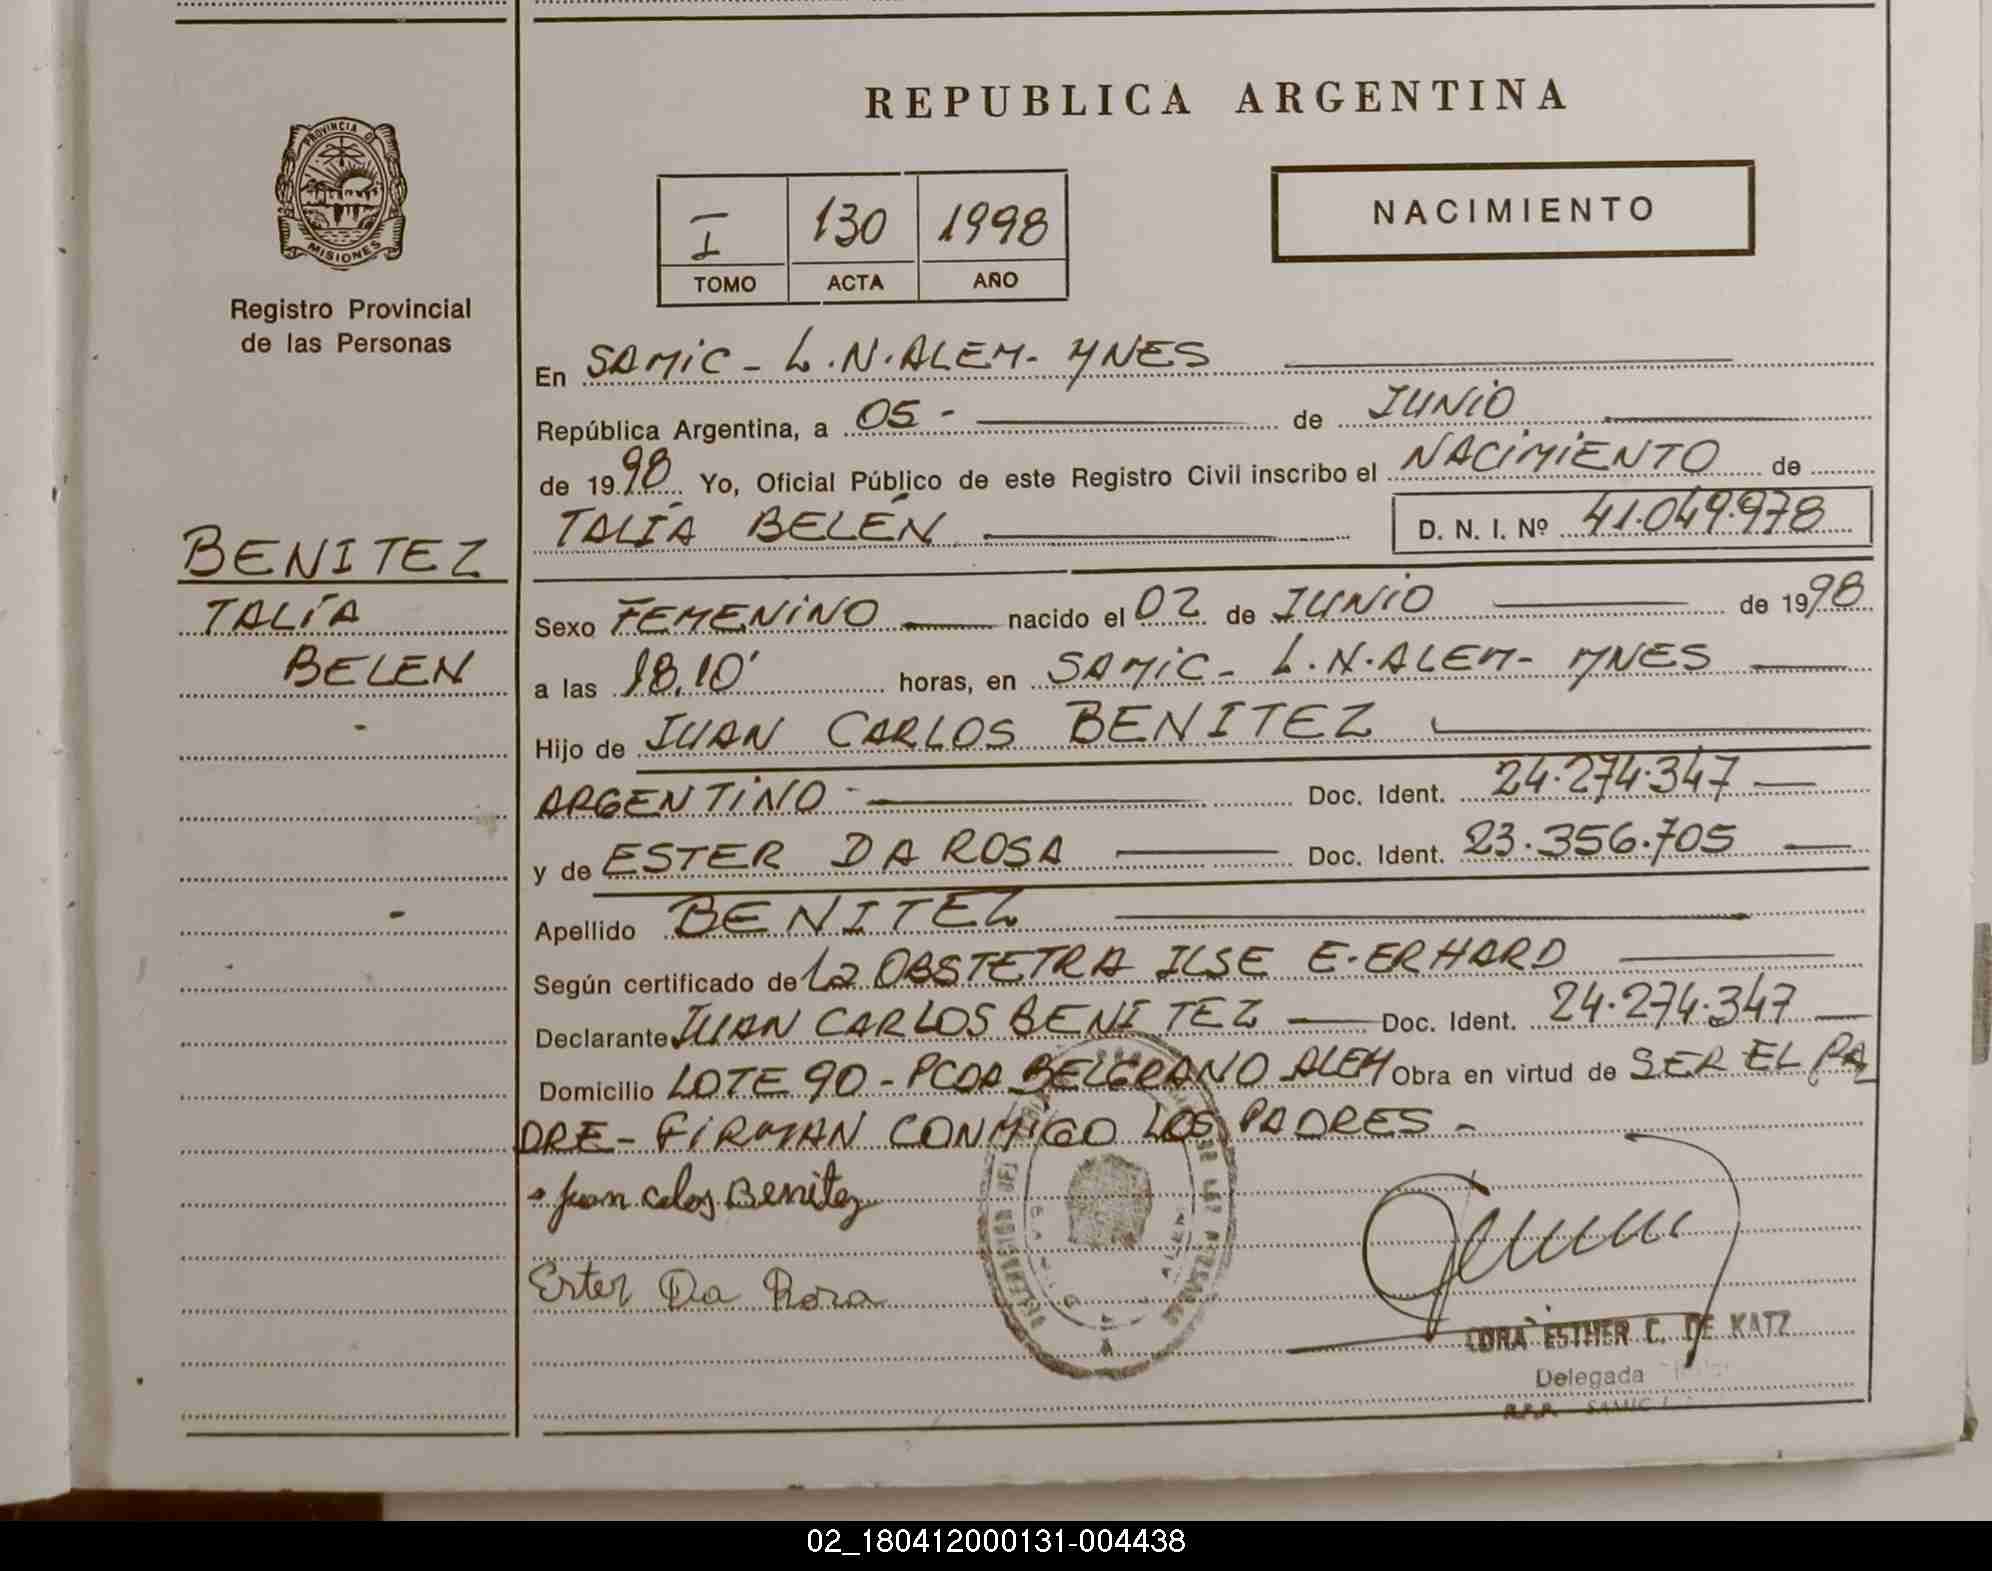 REPUBLICA ARGENTINA
PROVINCIA D
MISIONES
Registro Provincial
de las Personas
I 130 1998
TOMO ACTA AÑO
NACIMIENTO
En SAMIC - L.N.ALEM- MNES
República Argentina, a 05 - de JUNIO
de 1998 Yo, Oficial Público de este Registro Civil inscribo el NACIMIENTO de
TALÍA BELÉN D. N. I. Nº 41.049.978
BENITEZ
TALÍA
BELEN
Sexo FEMENINO nacido el 02 de JUNIO de 1998
a las 18.10' horas, en SAMIC - L.N.ALEM- MNES
Hijo de JUAN CARLOS BENITEZ
ARGENTINO - Doc. Ident. 24.274.347
y de ESTER DA ROSA Doc. Ident. 23.356.705
Apellido BENITEZ
Según certificado de La OBSTETRA ILSE E. ERHARD
Declarante JUAN CARLOS BENITEZ Doc. Ident. 24.274.347
Domicilio LOTE 90 - PCDA BELGRANO ALEM Obra en virtud de SER EL PA
DRE - FIRMAN CONMIGO LOS PADRES -
Juan Calos Benitez
Ester Da Rosa
ESTHER C. DE KATZ
Delegada
R.P.P. SAMIC
02_180412000131-004438